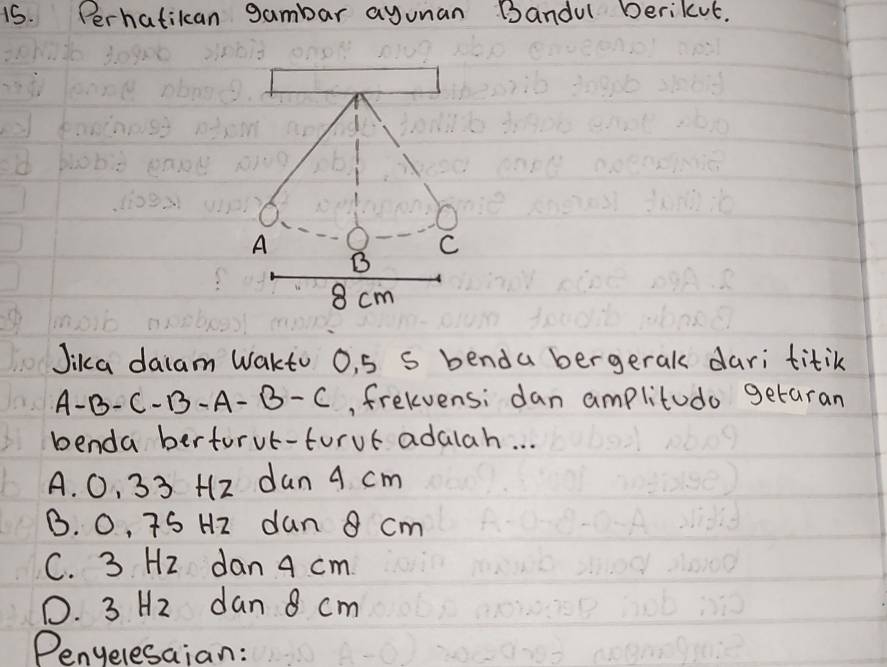 15. Perhatikan gambar ayunan Bandul berikut.
A
B
C
8 cm
Jika dalam waktu 0,5 s benda bergerak dari titik
A-B-C-B-A-B-C, frekuensi dan amplitudo getaran
benda berturut-turut adalah...
A. 0,33 Hz dan 4 cm
B. 0,75 Hz dan 8 cm
C. 3 Hz dan 4 cm
D. 3 Hz dan 8 cm
Penyelesaian: